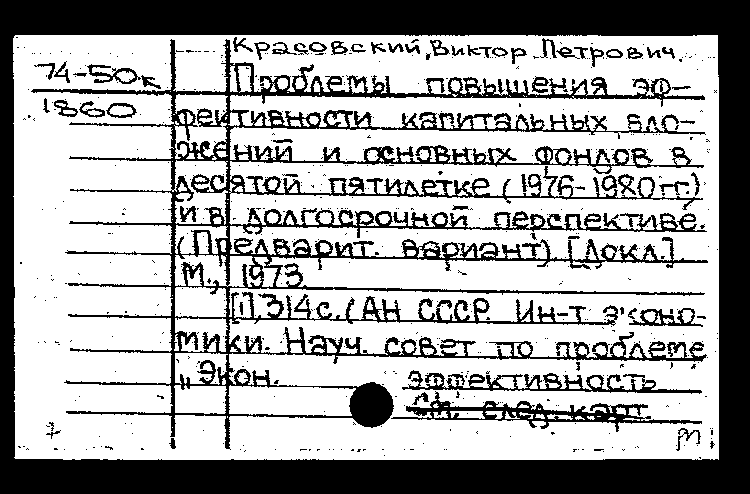 Красовский, Виктор Петрович.
74-50к
1860
Проблемы повышения эф-
фективности капитальных вло-
жений и основных фондов в
десятой пятилетке (1976-1980 гг.)
и в долгосрочной перспективе.
(Предварит. вариант) [Докл.].
М., 1973
[1], 314 с. (АН СССР. Ин-т эконо-
мики. Науч. совет по проблеме
„Экон. эффективность
См. след. карт.